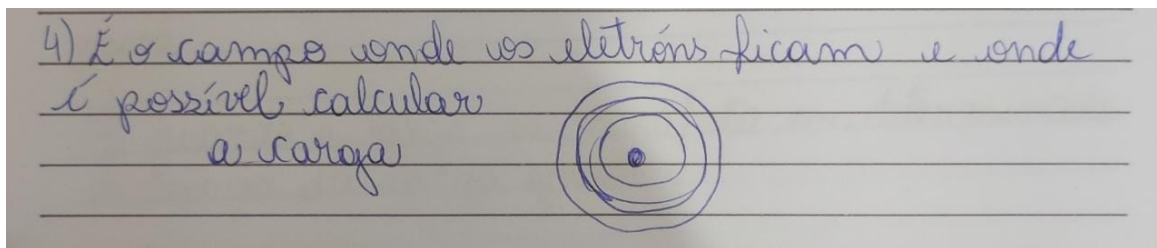 4) É o campo onde os eletróns ficam e onde
é possível calcular
a carga